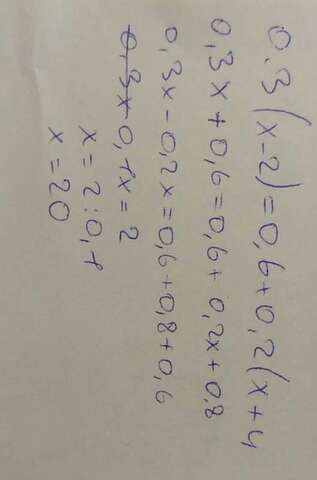 0,3(x-2)=0,6+0,2(x+4
0,3x+0,6=0,6+0,2x+0,8
0,3x-0,2x=0,6+0,8+0,6
0,3x 0,1x=2
x=2:0,1
x=20